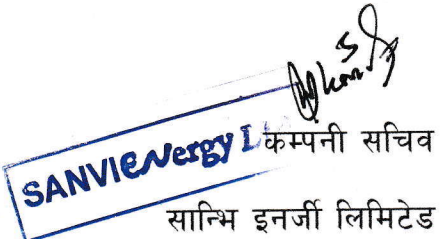 SANVIENergy L
कम्पनी सचिव
सान्भि इनर्जी लिमिटेड